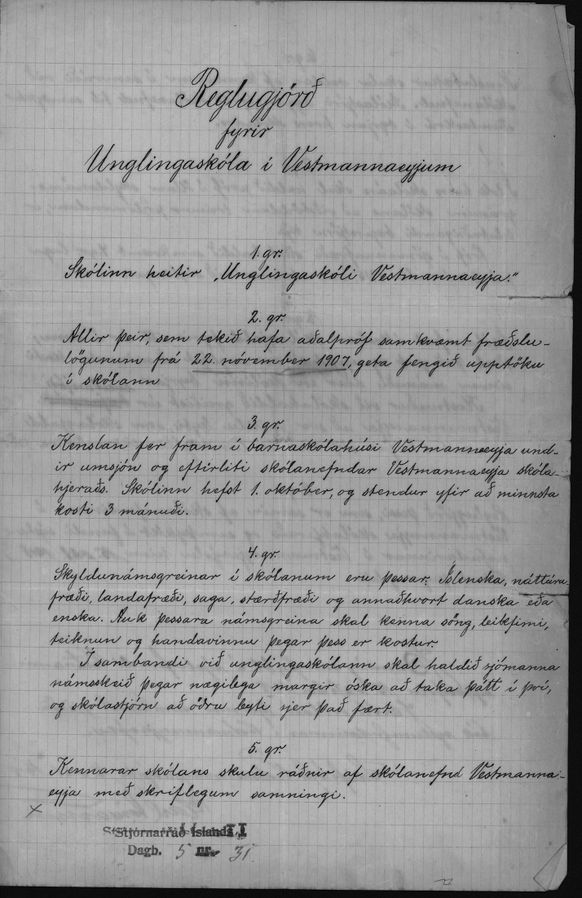 Reglugjörð
fyrir
Unglingaskóla í Vestmannaeyjum
1. gr.
Skólinn heitir „Unglingaskóli Vestmannaeyja."
2. gr.
Allir þeir, sem tekið hafa aðalpróf samkvæmt fræðslu-
lögunum frá 22. nóvember 1907, geta fengið upptöku
í skólann
3. gr.
Kenslan fer fram í barnaskólahúsi Vestmannaeyja und-
ir umsjón og eftirliti skólanefndar Vestmannaeyja skóla
hjeraðs. Skólinn hefst 1. október, og stendur yfir að minnsta
kosti 3 mánuði.
4. gr.
Skyldunámsgreinar í skólanum eru þessar: Íslenska, náttúru
fræði, landafræði, saga, stærðfræði og annaðhvort danska eða
enska. Auk þessara námsgreina skal kenna söng, leikfimi,
teiknun og handavinnu þegar þess er kostur.
Í sambandi við unglingaskólann skal haldið sjómanna
námsskeið þegar nægilega margir óska að taka þátt í því,
og skólastjórn að öðru leyti sjer það fært.
5. gr.
Kennarar skólans skulu ráðnir af skólanefnd Vestmanna-
eyja með skriflegum samningi.
x
Stjórnarráð Íslands II
Dagb. 5 nr. 31